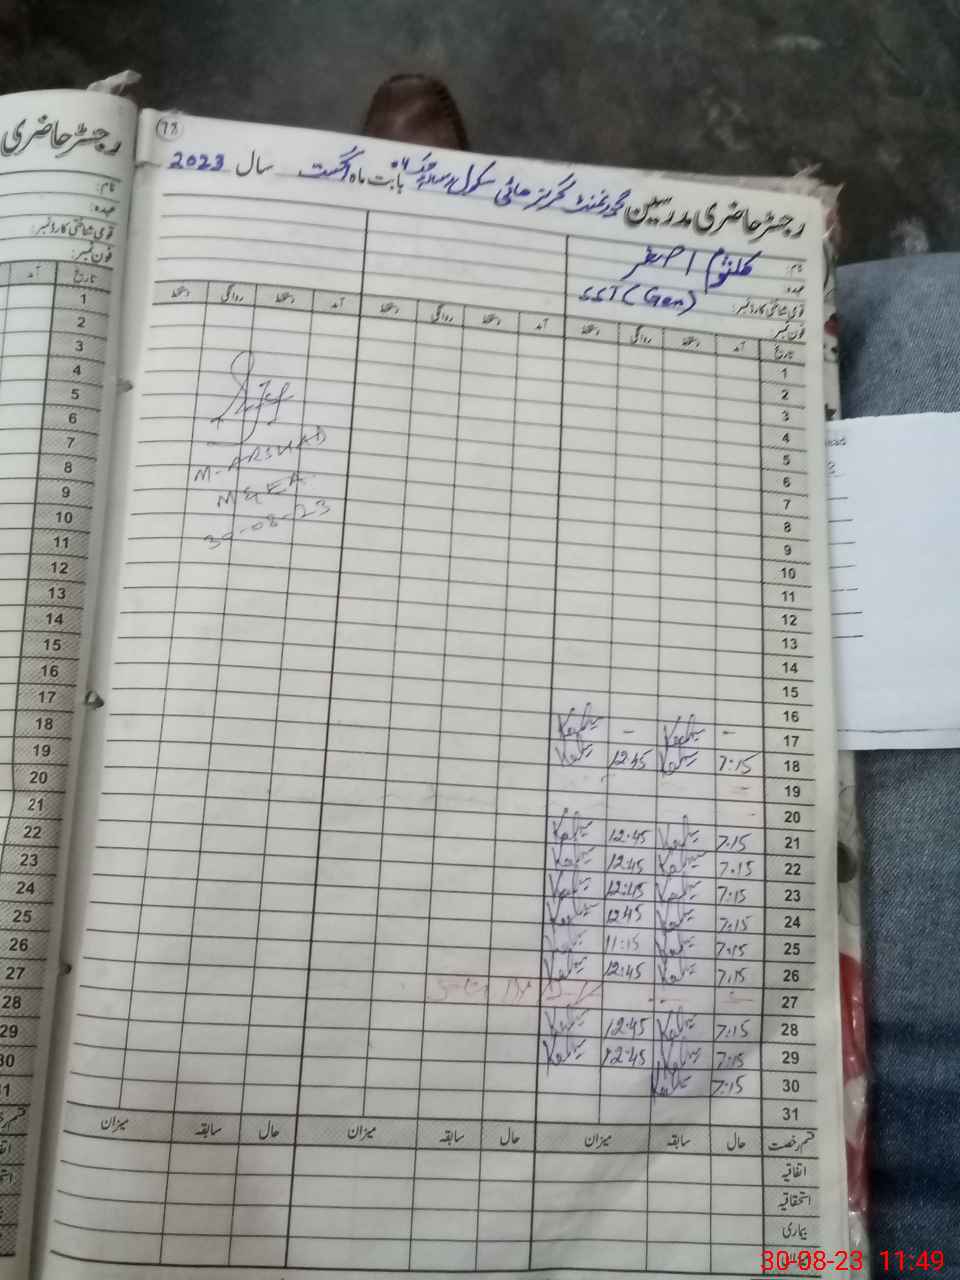 رجسٹر حاضری
نام:
عہدہ:
قومی شناختی کارڈ نمبر:
فون نمبر:
آمد تاریخ
1
2
3
4
5
6
7
8
9
10
11
12
13
14
15
16
17
18
19
20
21
22
23
24
25
26
27
28
29
30
31
78
رجسٹر حاضری مدرسین گورنمنٹ گرلز ھائی سکول بابت ماہ اگست سال 2023
نام: کلثوم اصغر
عہدہ: SST (Gen)
قومی شناختی کارڈ نمبر:
فون نمبر:
تاریخ آمد دستخط روانگی دستخط آمد دستخط روانگی دستخط آمد دستخط روانگی دستخط
1
2
3
4
5
6
7
8
9
10
11
12
13
14
15
16
17 - -
18 7:15 12:45
19
20
21 7:15 12:45
22 7:15 12:45
23 7:15 12:45
24 7:15 12:45
25 7:15 11:15
26 7:15 12:45
27
28 7:15 12:45
29 7:15 12:45
30 7:15
31
M-ARSHAD
M&EA
30-08-23
قسم رخصت حال سابقہ میزان حال سابقہ میزان حال سابقہ میزان
اتفاقیہ
استحقاقیہ
بیماری
30-08-23 11:49